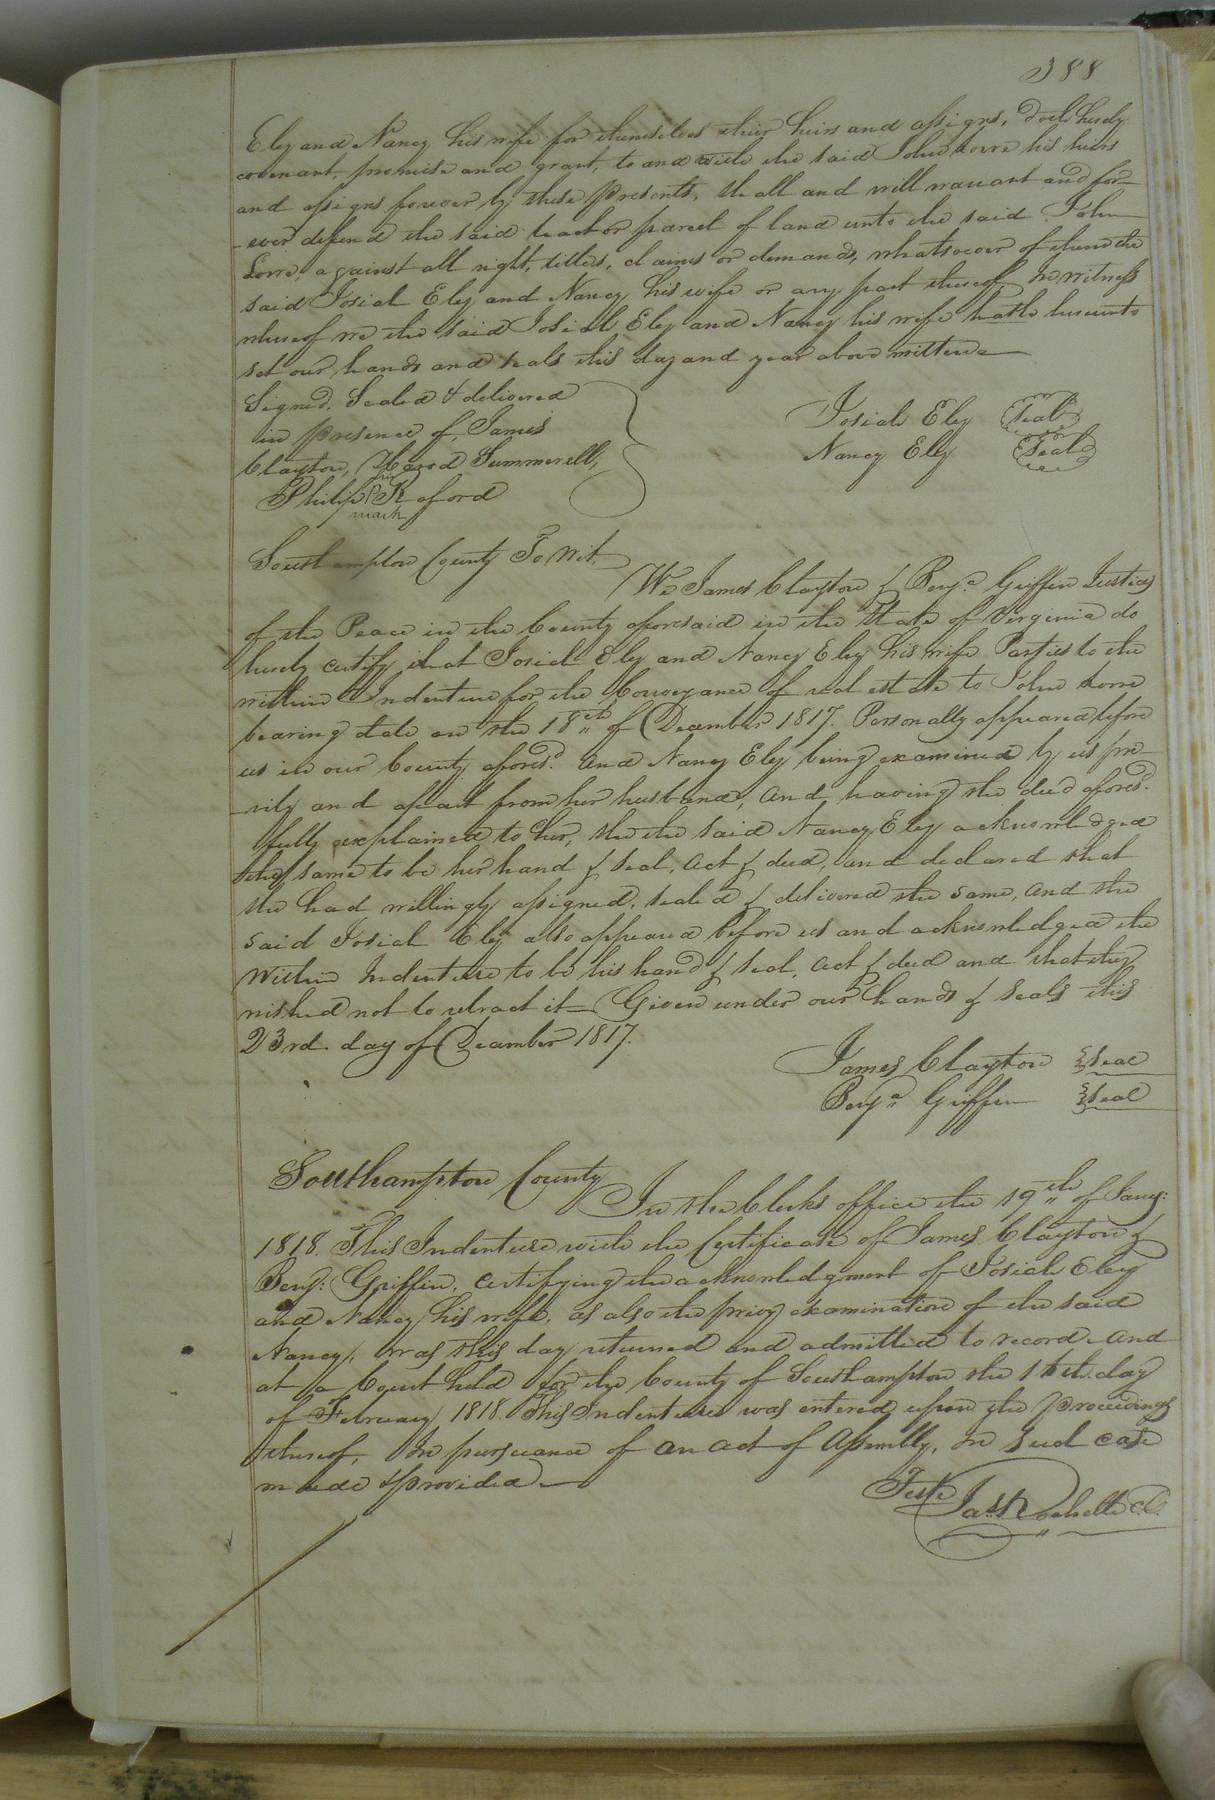 388
Eley and Nancy his wife for themselves their heirs and assigns, doth hereby
covenant, promise and grant, to and with the said John Lorre his heirs
and assigns forever by these presents, shall and will warrant and for-
-ever defend the said tract or parcel of land unto the said John
Lorre, against all right, titles, claims or demands, whatsoever of them the
said Josiah Eley and Nancy his wife or any part thereof, In witness
whereof we the said Josiah Eley and Nancy his wife hath hereunto
set our hands and seals this day and year above written
Signed, Sealed & delivered
in presence of, James
Clayton, Summerell,
Philip his K mark oford
Josiah Eley Seal
Nancy Eley Seal
Southampton County To Wit.
We James Clayton & Benja. Griffin Justices
of the Peace in the County aforesaid in the State of Virginia do
hereby certify that Josiah Eley and Nancy Eley his wife Parties to the
within Indenture for the Conveyance of real estate to John Lorre
bearing date on the 18th of December 1817. Personally appeared before
us in our County afores.d And Nancy Eley being examined by us pri-
-vily and apart from her husband, And having the deed afores.d
fully explained to her, she the said Nancy Eley acknowledged
the same to be her hand & seal, act & deed, and declared that
she had willingly assigned, sealed & delivered the same, And the
said Josiah Eley also appeared before us and acknowledged the
Within Indenture to be his hand & seal, act & deed and that they
wished not to retract it Given under our hands & seals this
23rd day of December 1817.
James Clayton Seal
Benja. Griffin Seal
Southampton County
In the Clerks office the 19th of Jany:
1818. This Indenture with the Certificate of James Clayton &
Benj: Griffin, certifying the acknowledgment of Josiah Eley
and Nancy his wife, as also the privy examination of the said
Nancy, was this day returned and admitted to record And
at a Court held for the County of Southampton the 16th day
of February 1818. This Indenture was entered upon the Proceedings
thereof, In pursuance of an act of Assembly, in such case
made & provided
Teste
Jas. Rochelle C.C.